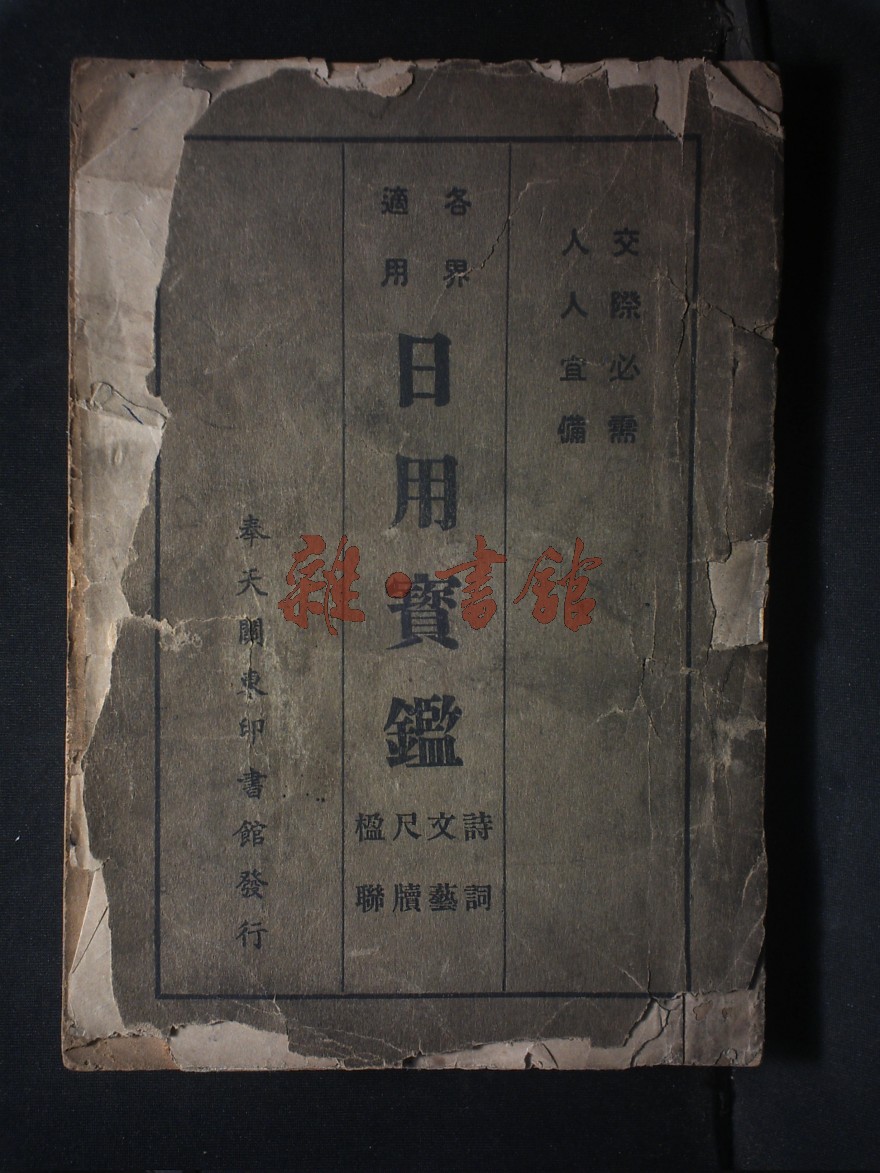 交際必需
人人宜備
各界
適用
日用寶鑑
詩詞
文藝
尺牘
楹聯
奉天關東印書館發行
雜·書館